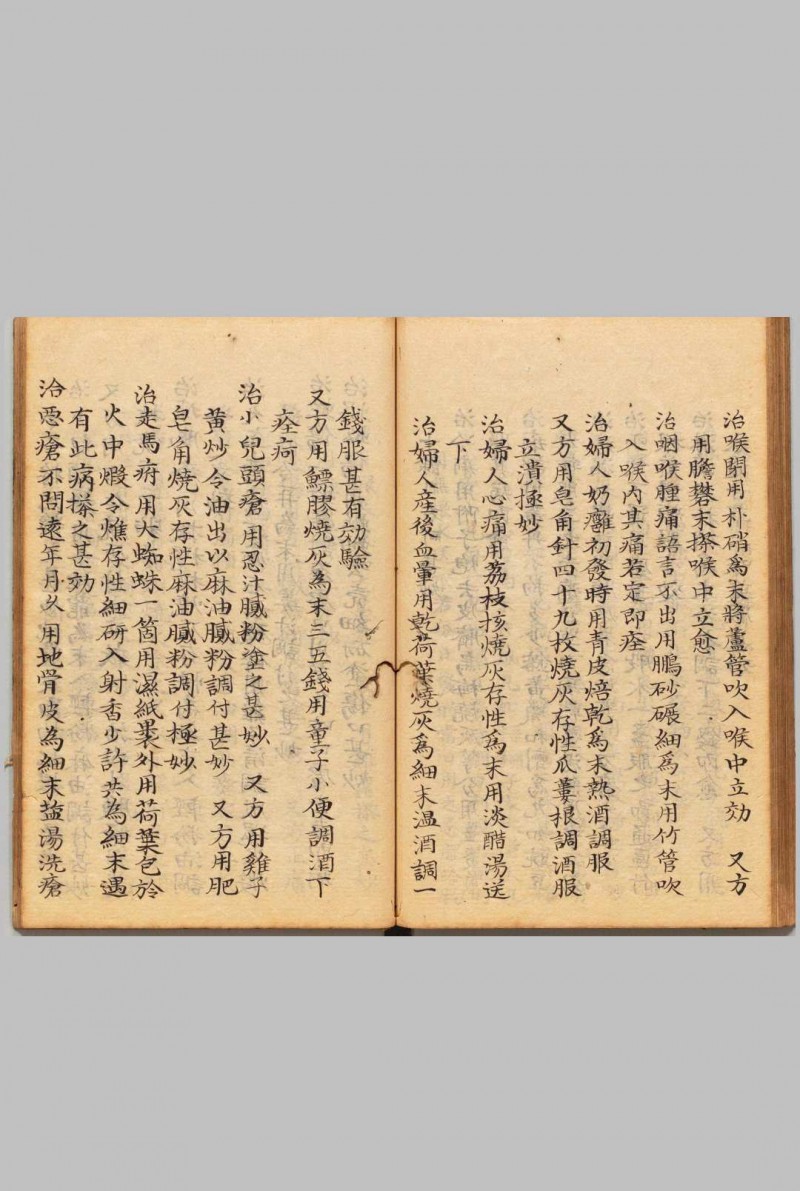 治喉閉用朴硝爲末將蘆管吹入喉中立効　又方
用膽礬末搽喉中立愈
治咽喉腫痛語言不出用鵬砂碾細爲末用竹管吹
入喉內其痛若定即痊
治婦人奶癰初發時用青皮焙乾爲末熱酒調服
又方用皂角針四十九枚燒灰存性瓜蔞根調酒服
立潰極妙
治婦人心痛用荔枝核燒灰存性爲末用淡醋湯送
下
治婦人産後血暈用乾荷葉燒灰爲細末温酒調一
錢服甚有効驗
又方用鰾膠燒灰為末三五錢用童子小便調酒下
痊疴
治小兒頭瘡用忍汁膩粉塗之甚妙　又方用雞子
黄炒令油出以麻油膩粉調付甚妙　又方用肥
皂角燒灰存性麻油膩粉調付極妙
治走馬疳用大蜘蛛一箇用濕紙裹外用荷葉包於
火中煅令燋存性細研入射香少許共為細末遇
有此病搽之甚効
治惡瘡不問遠年月久用地骨皮為細末盐湯洗瘡